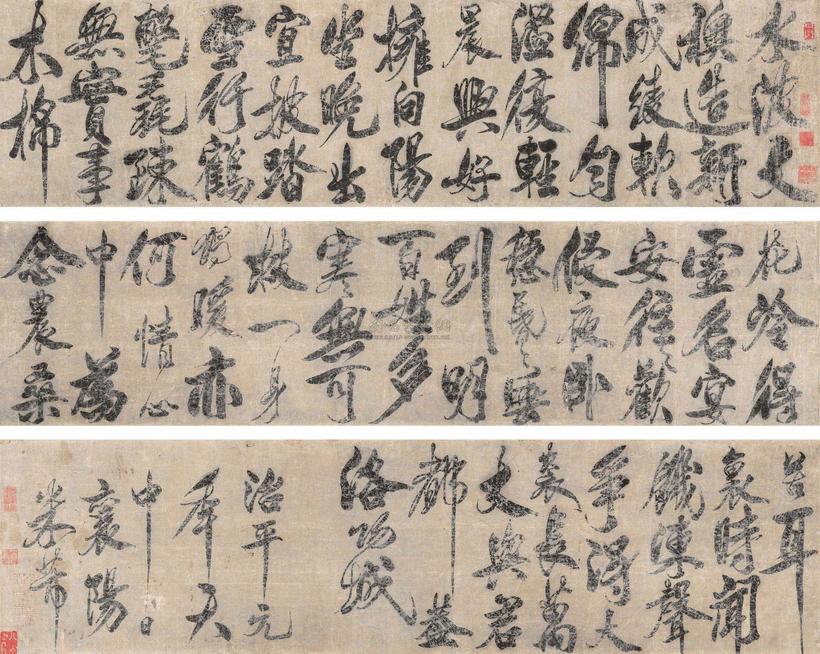 水波文
襖造新
成綾軟
綿勻
溫復輕
晨興好
擁向陽
坐晚出
宜披踏
雪行鶴
氅毳疎
無實事
木棉
花冷得
虛名宴
安往〻歡
侵夜臥
穩昏〻睡
到明
百姓多
寒無可
救一身
獨暖亦
何情心
中為
念農桑
苦耳
裏時聞
饑凍聲
爭得大
裘長萬
丈與君
都蓋
洛陽城
治平元
年天
中日
襄陽
米芾